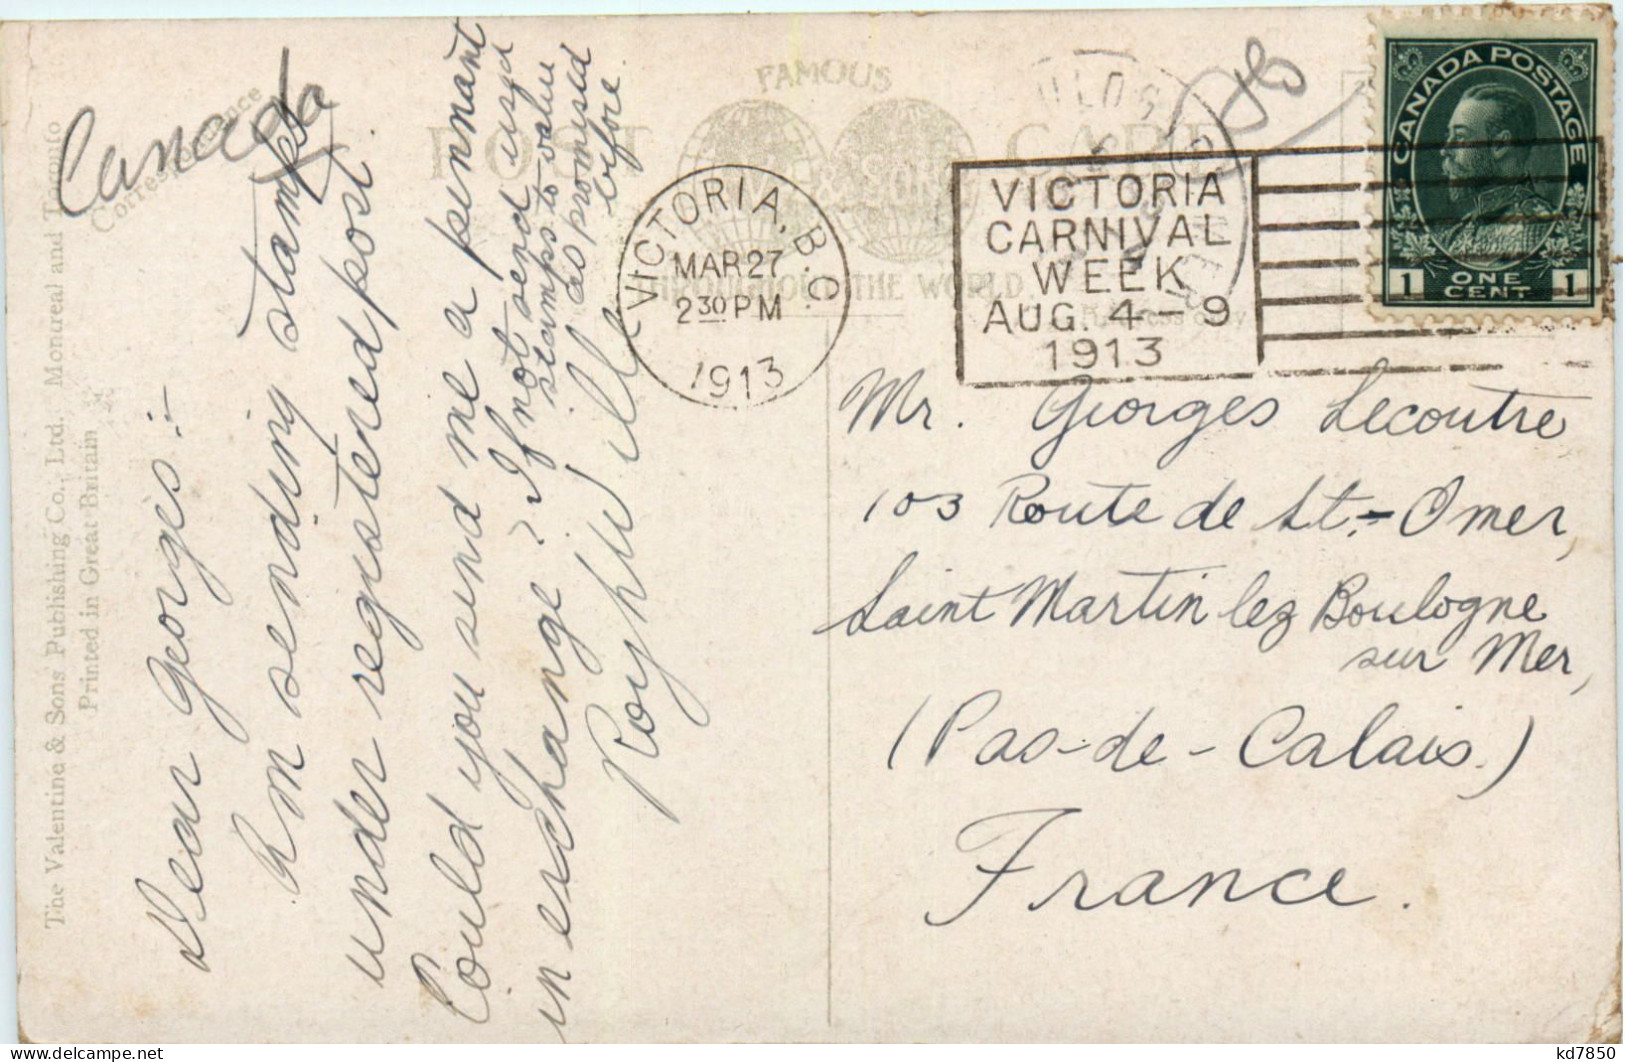 Canada
Correspondence
The Valentine & Sons Publishing Co., Ltd. Montreal and Toronto
Printed in Great Britain
Dear Georges :-
Am sending stamps
under registered post.
Could you send me a pennant
in exchange? If not send used
stamps to value
as promised
before.
FAMOUS
POST CARD
THROUGHOUT THE WORLD
VICTORIA, B.C.
MAR 27
2 30 PM
1913
VICTORIA
CARNIVAL
WEEK
AUG. 4-9
1913
CANADA POSTAGE
1 ONE CENT 1
Mr. Georges Lecoutre
103 Route de St.-Omer,
Saint Martin lez Boulogne
sur Mer,
(Pas-de-Calais.)
France.
kd7850